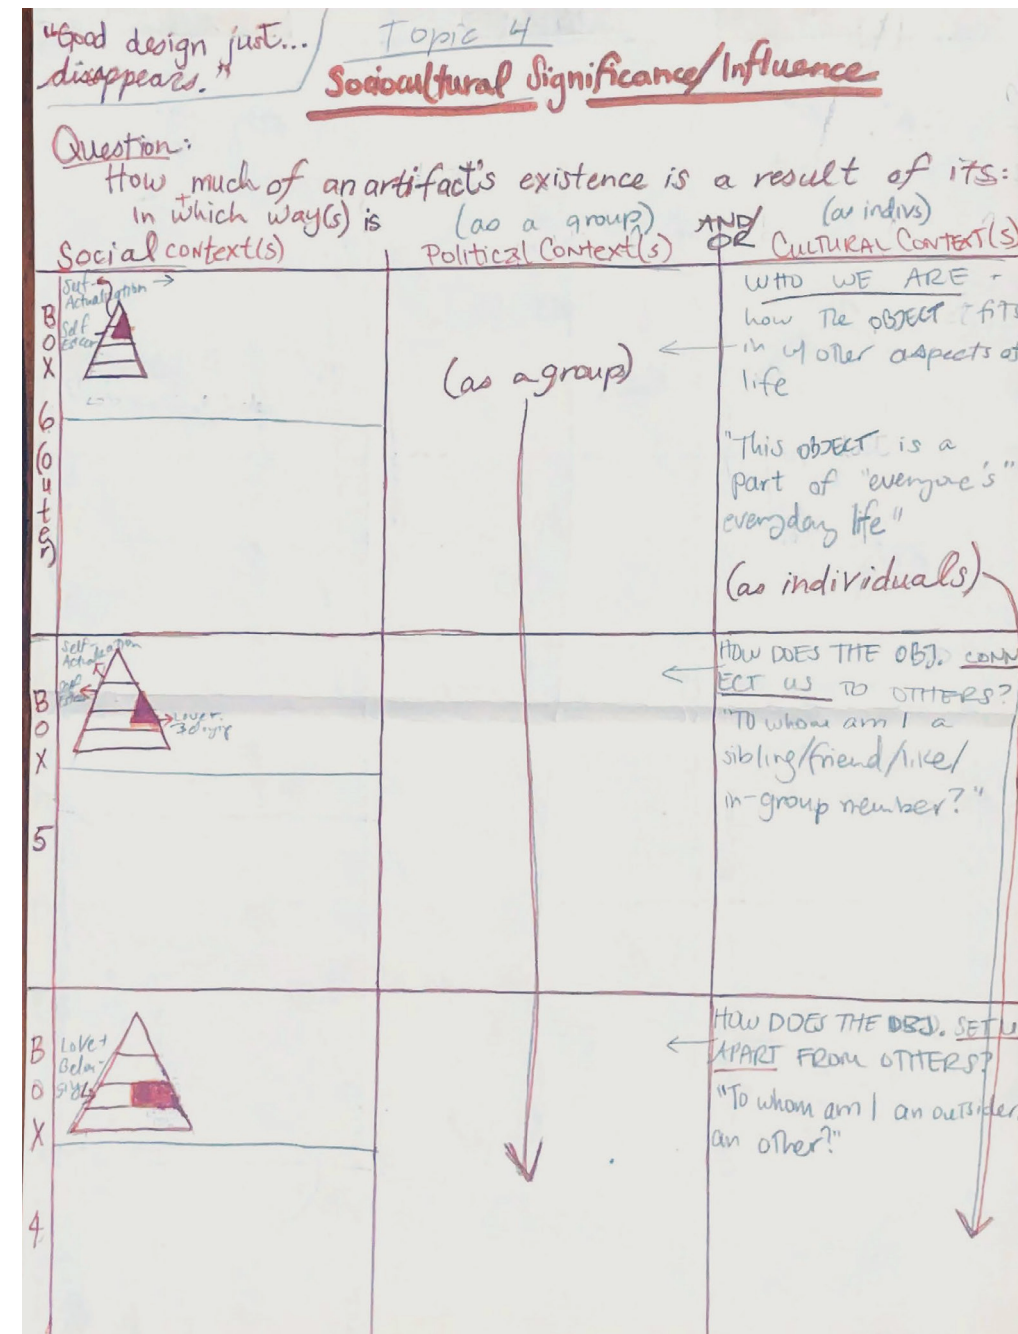 "Good design just...
disappears."
Topic 4
Sociocultural Significance/Influence
Question:
How much of an artifact's existence is a result of iTS:
+
in which way(s) is
(as a group)
AND/
OR
(as indivs)
Social context(s)
Political Context(s)
CULTURAL CONTEXT(S)
BOX 6 (outer)
Self-
Actualization
Self
Esteem
(as a group)
WHO WE ARE -
how The OBJECT fits
in w/ other aspects of
life
"This OBJECT is a
part of "everyone's"
everyday life"
(as individuals)
BOX 5
Self-
Actualization
Self
Esteem
Love+
HOW DOES THE OBJ. CONN
ECT US TO OTHERS?
"To whom am I a
sibling/friend/like/
in-group member?"
BOX 4
Love+
Belon-
HOW DOES THE OBJ. SET U
APART FROM OTHERS?
"To whom am I an outsider
an other?"